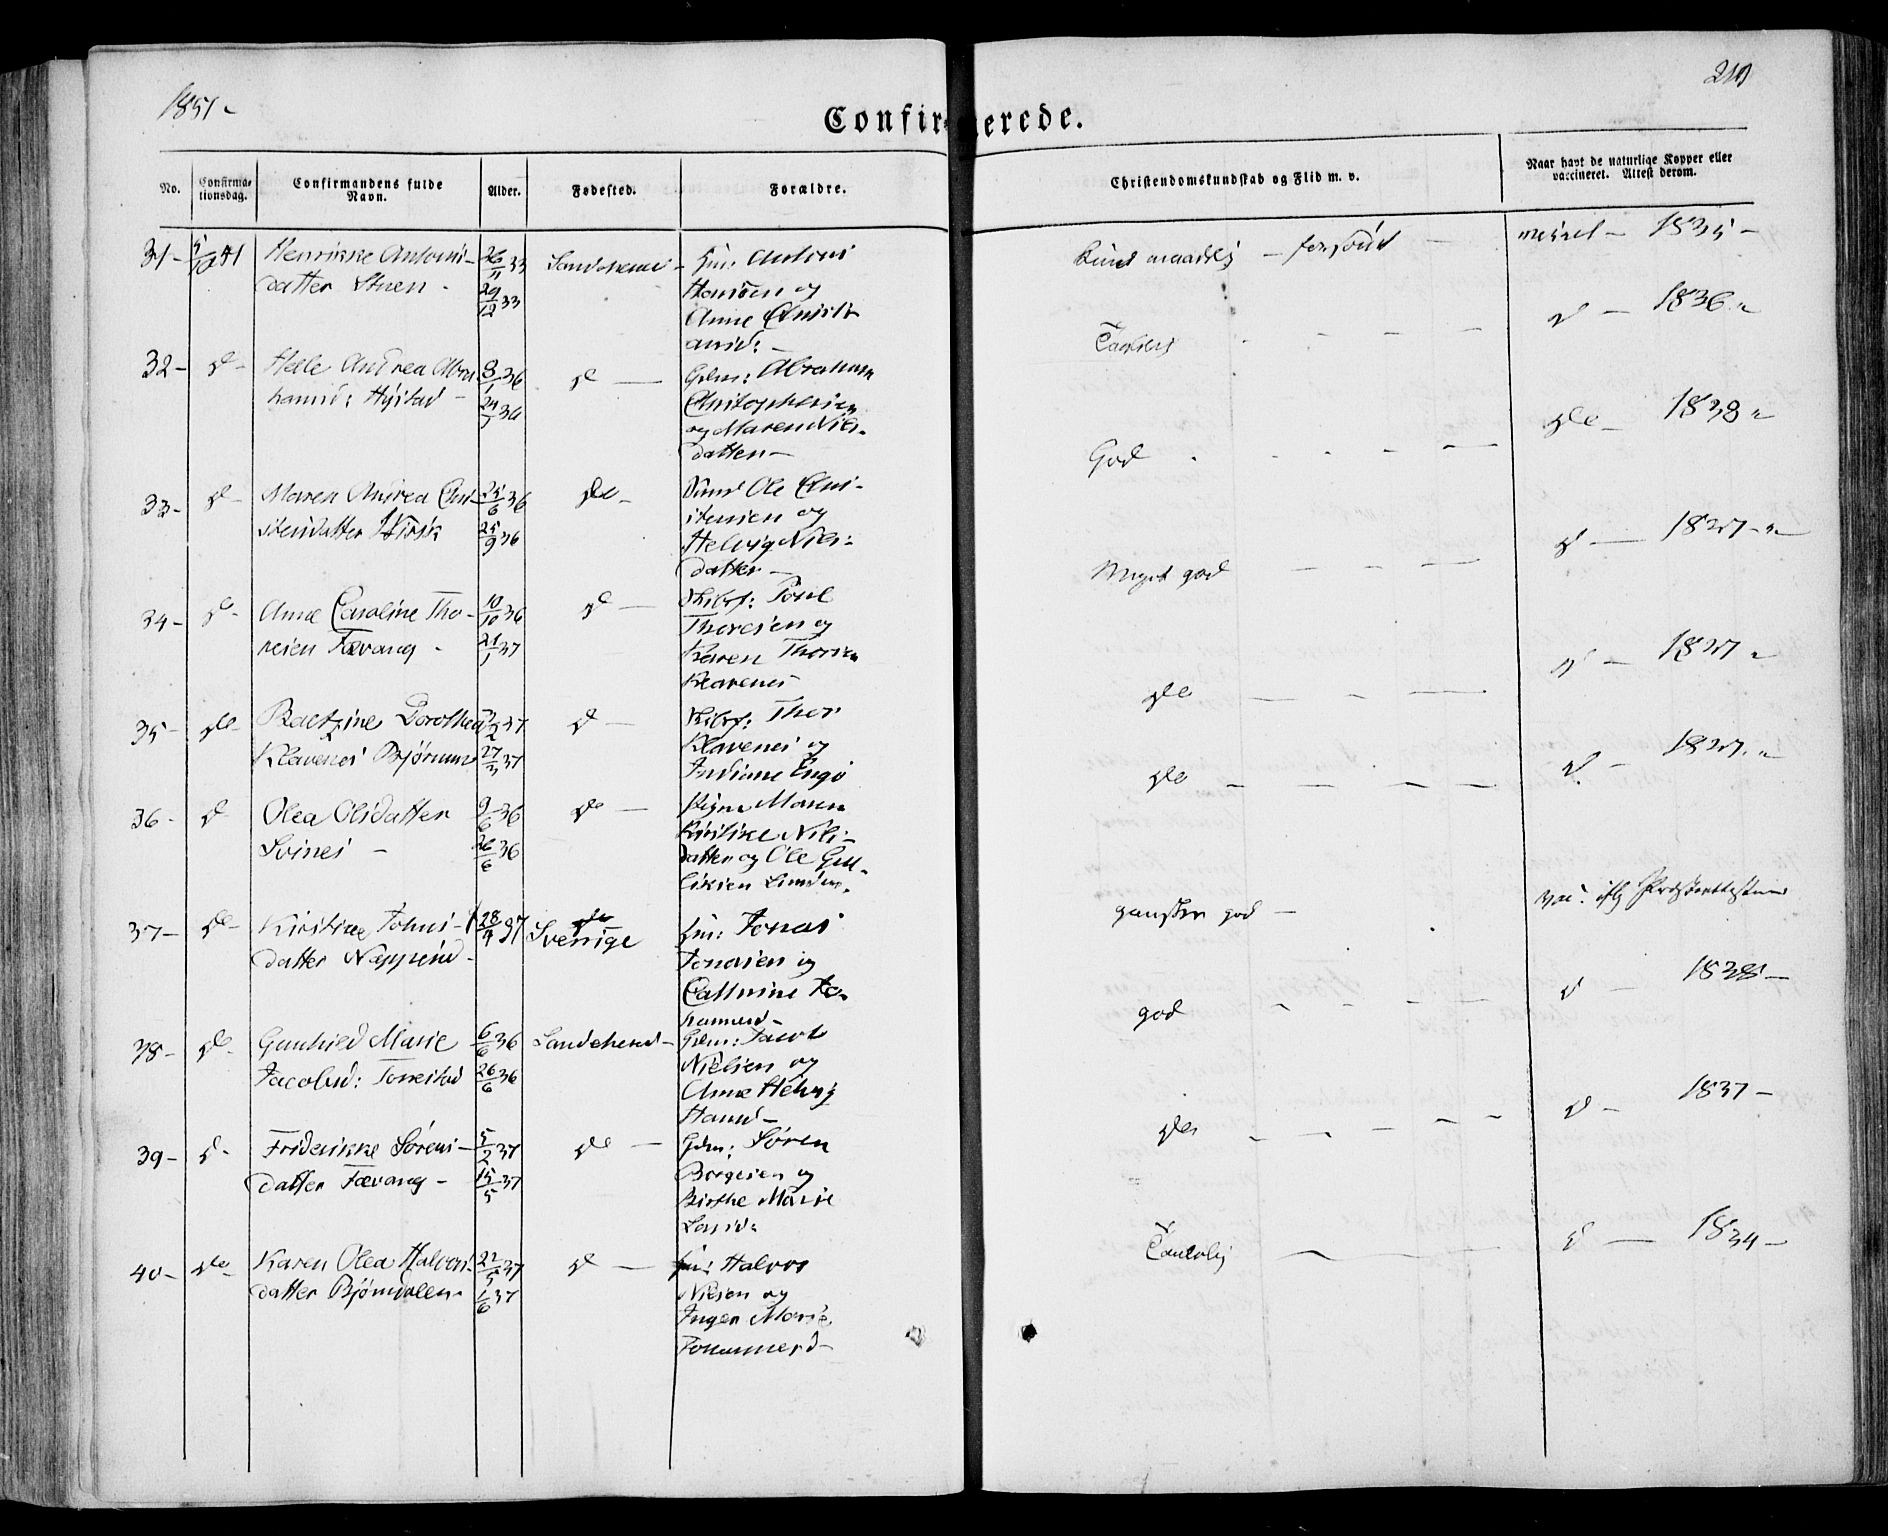 1851 -
210
Confirmerede.
No.
Confirma-
tionsdag.
Confirmandens fulde
Navn.
Alder.
Fødested.
Forældre.
Christendomskundskab og Flid m. v.
Naar havt de naturlige Kopper eller
vaccineret. Attest derom.
31 -
5/10 51
Henrikke Antonis-
datter Stuen -
26/11 33
29/12 33
Sandeherred -
Huus: Antoni
Hansen og
Anne Christi
ansd: -
kuns maadelig - forsømt -
1835 -
32 -
d -
Helle Andrea Abra
hamsd: Hystad -
8/1 36
24/1 36
d -
Gdm: Abraham
Christophersen
og Maren Niels-
datter -
Taalelig
d - 1836 -
33 -
d -
Maren Andrea Chri-
stensdatter Virik
25/6 36
25/9 36
do -
Ole Chri-
stensen og
Helvig Niels-
datter -
God
do - 1838 -
34 -
do -
Anne Caroline Tho-
resen Fævang -
10/10 36
21/1 37
d -
Skibsf: Poul
Thoresen og
Karen Thorsen
Klavenes
Meget god
d - 1837 -
35 -
do -
Baltzine Dorothea
Klavenes Bjørnum
27/3 37
d -
Skibsf: Thor
Klavenes og
Indiane Engø
do
d - 1837 -
36 -
d -
Olea Olsdatter
Svines -
9/6 36
26/6 36
do -
Pigen Maren
Kirstine Nils-
datter og Ole Gul-
liksen
do
d - 1837 -
37 -
do -
Kirstine Johns-
datter Nappind -
28/9 37
Sverrige
Huus: Jonas
Jonasen og
Cathrine Jo-
hannesd -
ganske god -
vac. iflg Præsteattest
38 -
do -
Gunhild Marie
Jacobsd: Tonestad
6/6 36
26/6 36
Sandeherred -
Gdm: Jacob
Nielsen og
Anne Helvig
Hansd -
god
d - 1838 -
39 -
d -
Friderikke Sørens-
datter Fævang -
5/2 37
15/5 37
do -
Gdm: Søren
Borgesen og
Birthe Marie
Larsd:
do
d - 1837 -
40 -
do -
Karen Olea Halvors
datter Bjørndalen -
22/5 37
1/6 37
d -
Huus: Halvor
Nilsen og
Inger Marie
Johannesd -
Taalelig
d - 1834 -